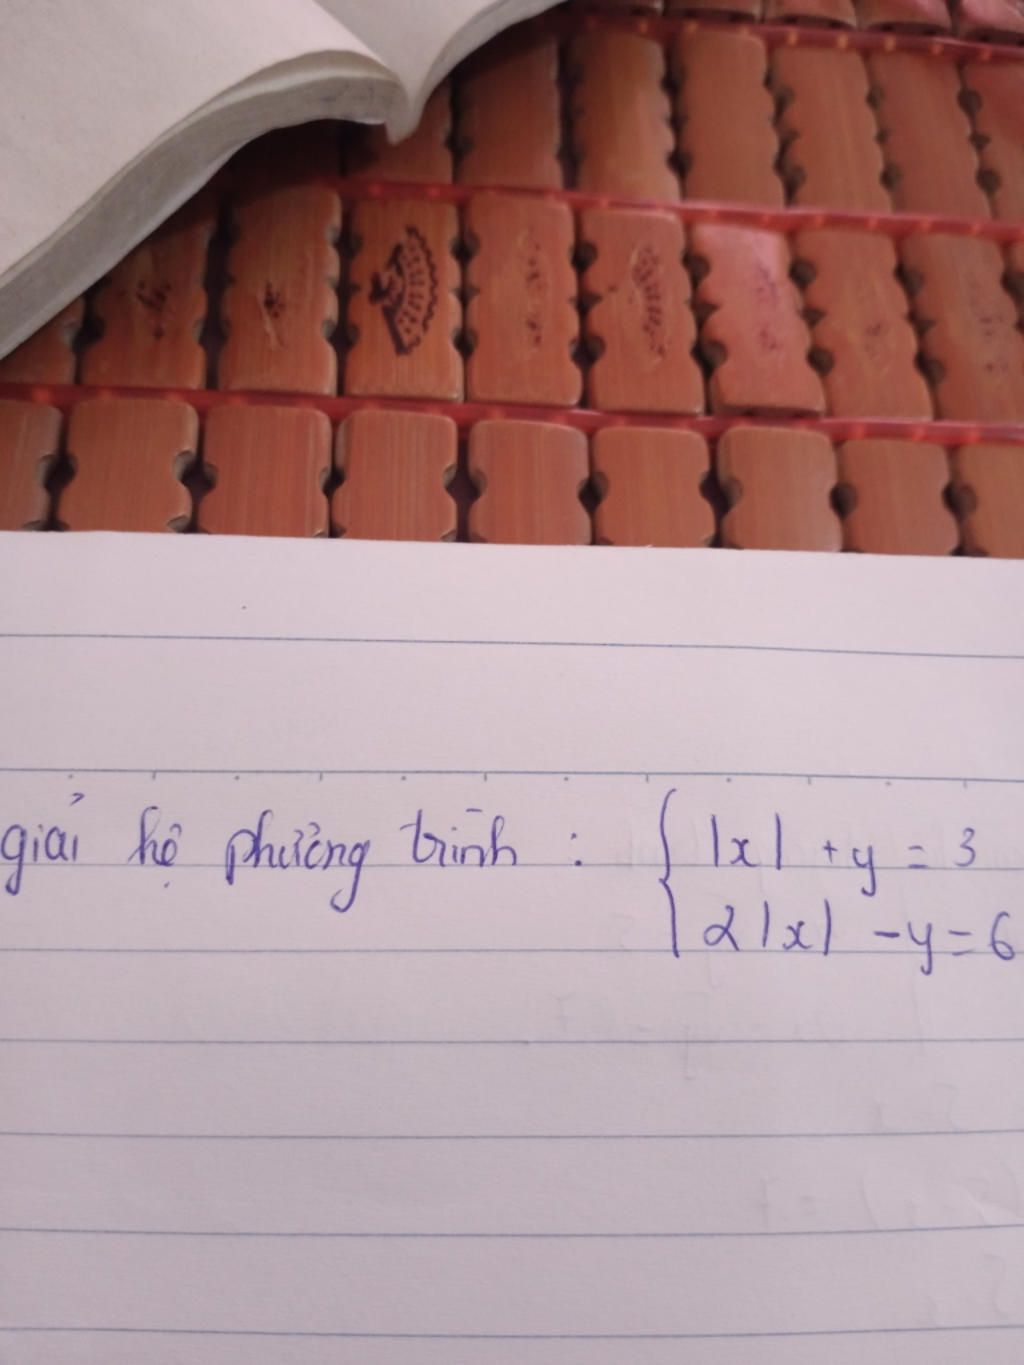 giải hệ phường trình : { |x| + y = 3
2|x| - y = 6